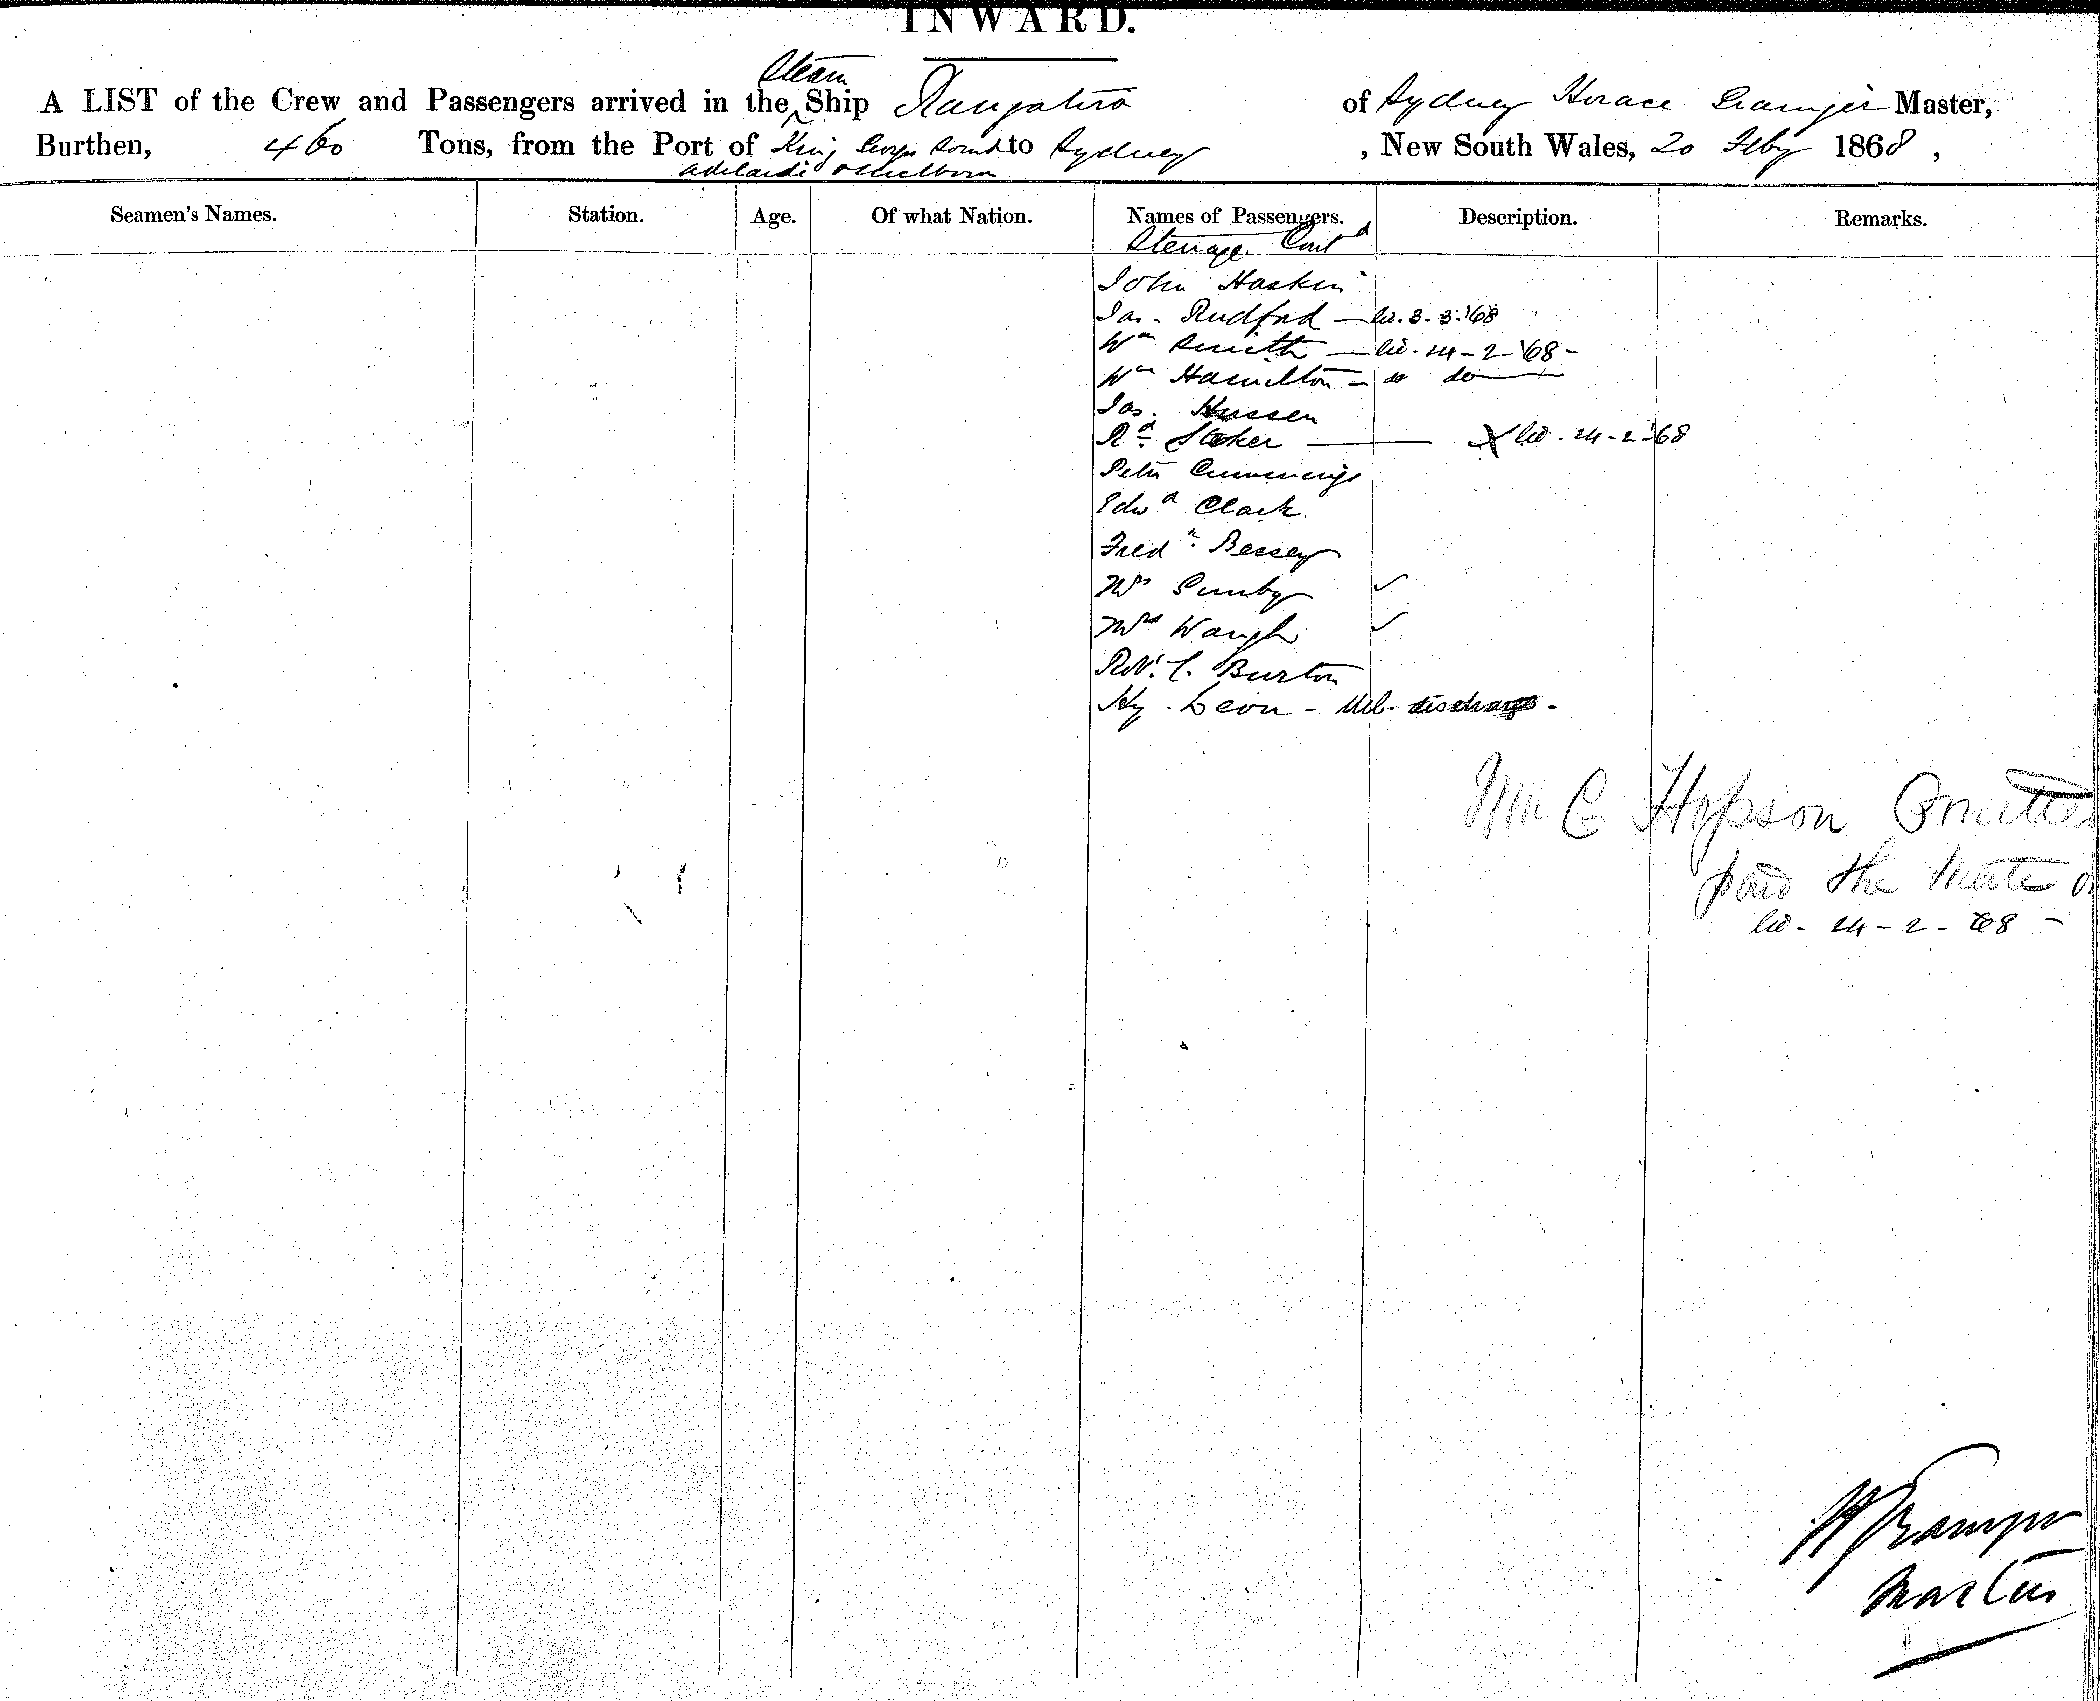 INWARD.
A LIST of the Crew and Passengers arrived in the Steam Ship Rangatira of Sydney Horace Grainger Master,
Burthen, 460 Tons, from the Port of King Georges Sound to Sydney , New South Wales, 20 Feby 1868 ,
Adelaide & Melbourn
Seamen's Names. Station. Age. Of what Nation. Names of Passengers. Description. Remarks.
Steerage Contd
John Haskin
Jas. Rudford 3-3-'68
Wm Smith 24-2-'68-
Wm Hamilton - do do
Jas. Hussen
Rd. Stoker X 24-2-'68
Peter Cummings
Edwd Clark
Fredk. Bessey
Mrs Gumby ✓
Mrs Waugh ✓
Revd. C. Burton
Hy. Leon - discharge -
Wm C Hopson Omitted
paid the Mate
24-2-68 -
H Grainger
Master